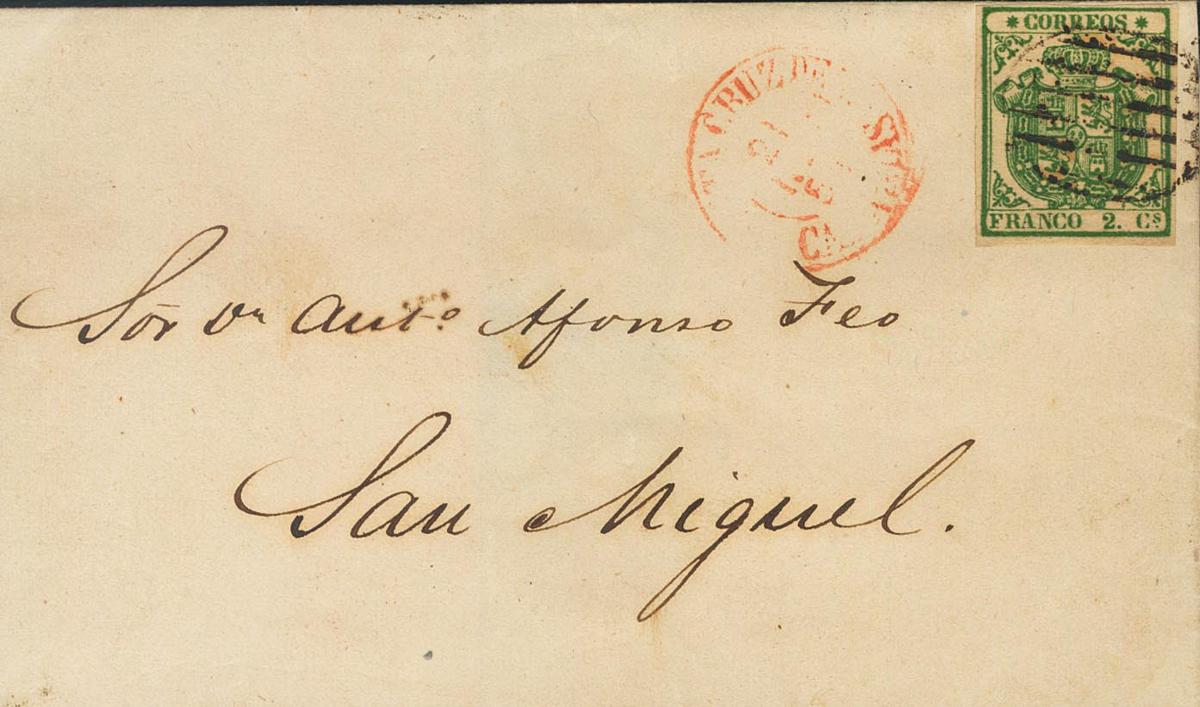 * CORREOS *
FRANCO 2. Cs
CRUZ DE
Sor Dn Anto Afonso Feo
San Miguel.